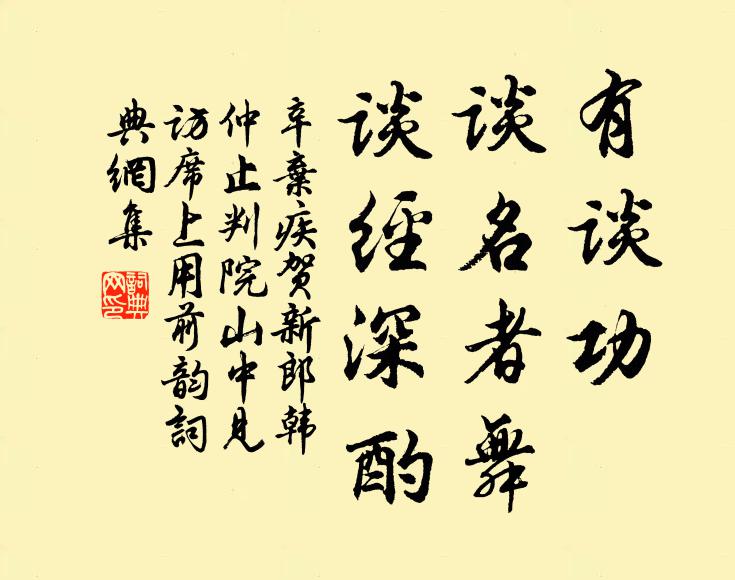 有谈功
谈名者舞
谈经深酌
辛棄疾贺新郎韩
仲止判院山中见
访席上用前韵詞
典網集
詞典
网印